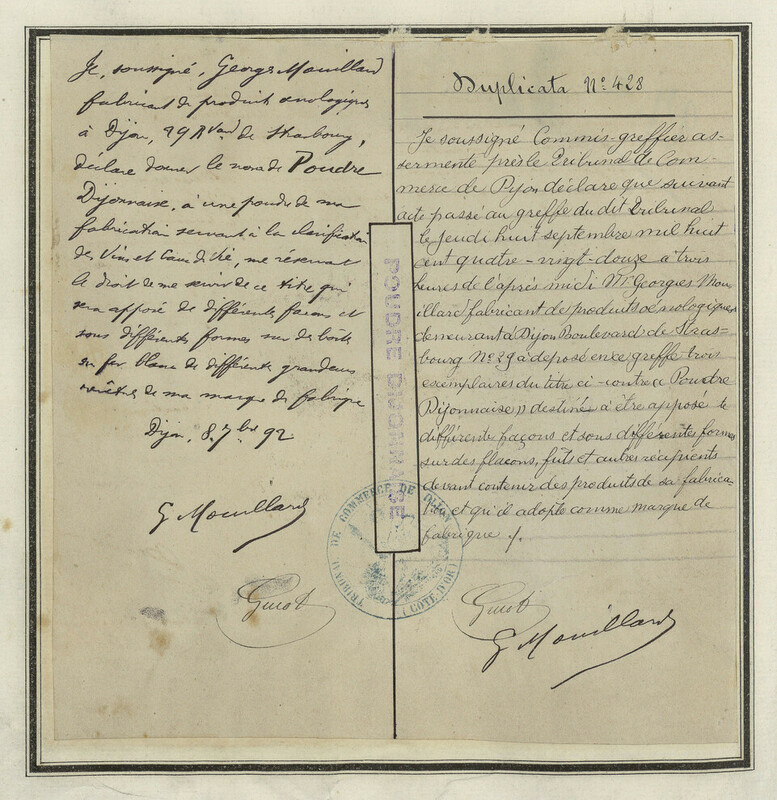 Je, soussigné, Georges Mouillard
fabricant de produits œnologiques
à Dijon, 29 Bvard de Strasbourg,
déclare donner le nom de Poudre
Dijonnaise, à une poudre de ma
fabrication servant à la clarification
des Vins et Eaux de Vie, me réservant
le droit de me servir de ce titre qui
sera apposé de différentes façons et
sous différentes formes sur des boîtes
en fer blanc de différentes grandeurs
revêtues de ma marque de fabrique
Dijon, 8 7bre 92
G Mouillard
Guiot
POUDRE DIJONNAISE
TRIBUNAL DE COMMERCE DE DIJON
(COTE-D'OR)
Duplicata N° 428
Je soussigné Commis-greffier as-
sermenté près le Tribunal de Com-
merce de Dijon déclare que suivant
acte passé au greffe du dit Tribunal
le Jeudi huit septembre mil huit
cent quatre-vingt-douze à trois
heures de l'après midi Mr Georges Mou-
illard fabricant de produits œnologiques
demeurant à Dijon Boulevard de Stras-
bourg N° 29 a déposé en ce greffe trois
exemplaires du titre ci-contre « Poudre
Dijonnaise » destinée à être apposé de
différente façons et sous différentes formes
sur des flacons, fûts et autres récipients
devant contenir des produits de sa fabrica-
tion et qu'il adopte comme marque de
fabrique ./.
Guiot
G Mouillard